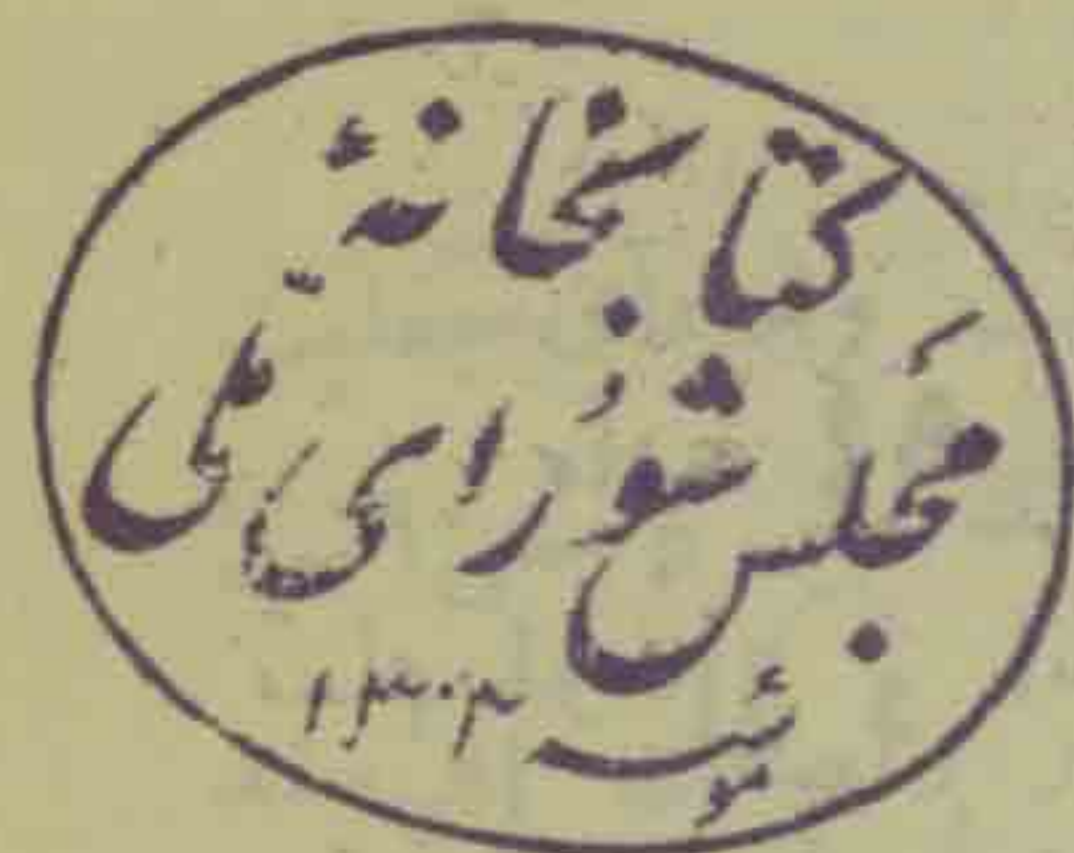 کتابخانهٔ
مجلس شورای ملّی
سنه ۱۳۰۲